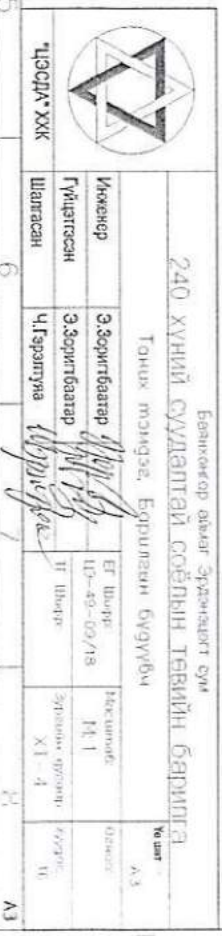 Баянхонгор аймаг Эрдэнэцогт сум
240 хүний суудалтай соёлын төвийн барилга
Таних тэмдэг, Барилгын будүүвч
Үе шат
А3
"ЦЭСДА" ХХК
Инженер Э.Зоригтбаатар
Гүйцэтгэсэн Э.Зоригтбаатар
Шалгасан Ч.Гэрэлтуяа
ЕГ Шифр:
ЦЭ-49-09/18
Масштаб:
М:1
Огноо:
ТГ Шифр:
Зургийн дугаар:
Х1 - 4
Хуудас
5 6 7 8
А3